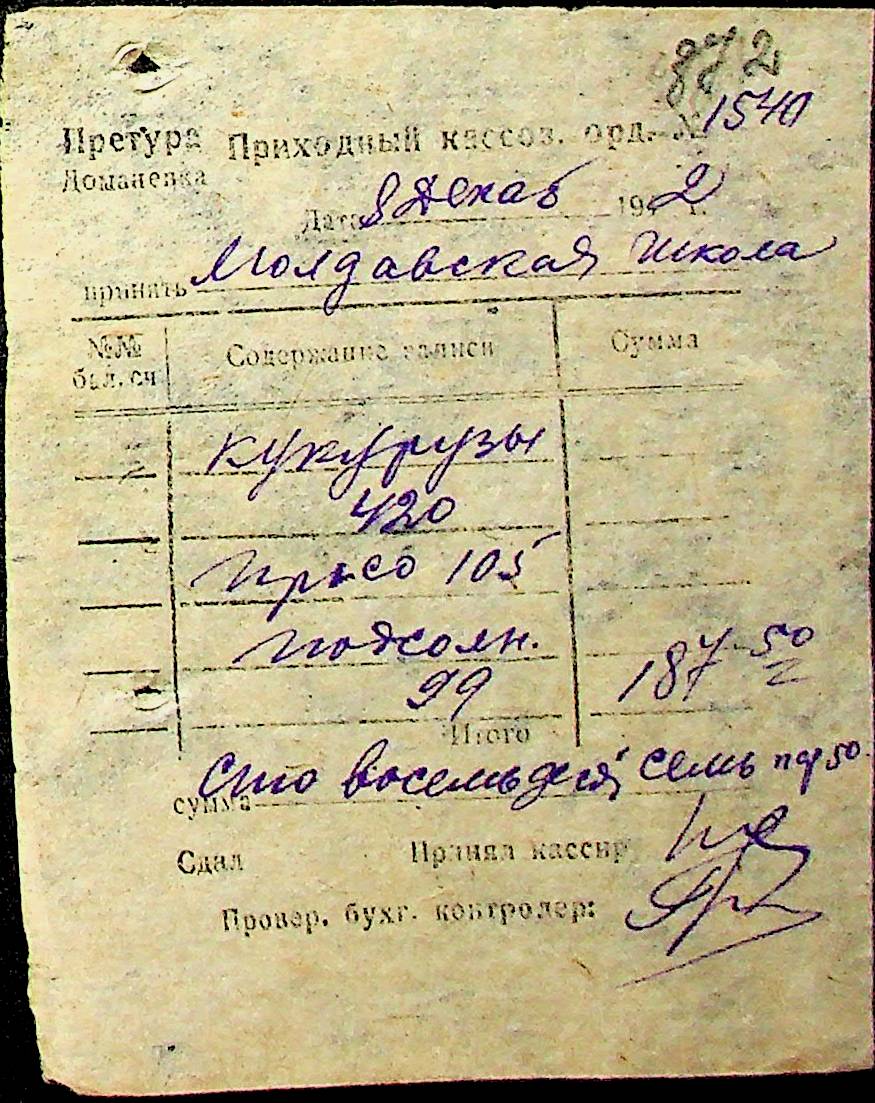 872
Претура Приходный кассов. орд. № 1540
Доманевка
Дата 8 Декаб 194 2 г.
принять Молдавская школа
№№ бал. сч Содержание записи Сумма
кукурузы
420
просо 105
подсолн.
99 187 50
Итого
сумма Сто восемьдесят семь 50
Сдал Принял кассир
Провер. бухг. контролер: